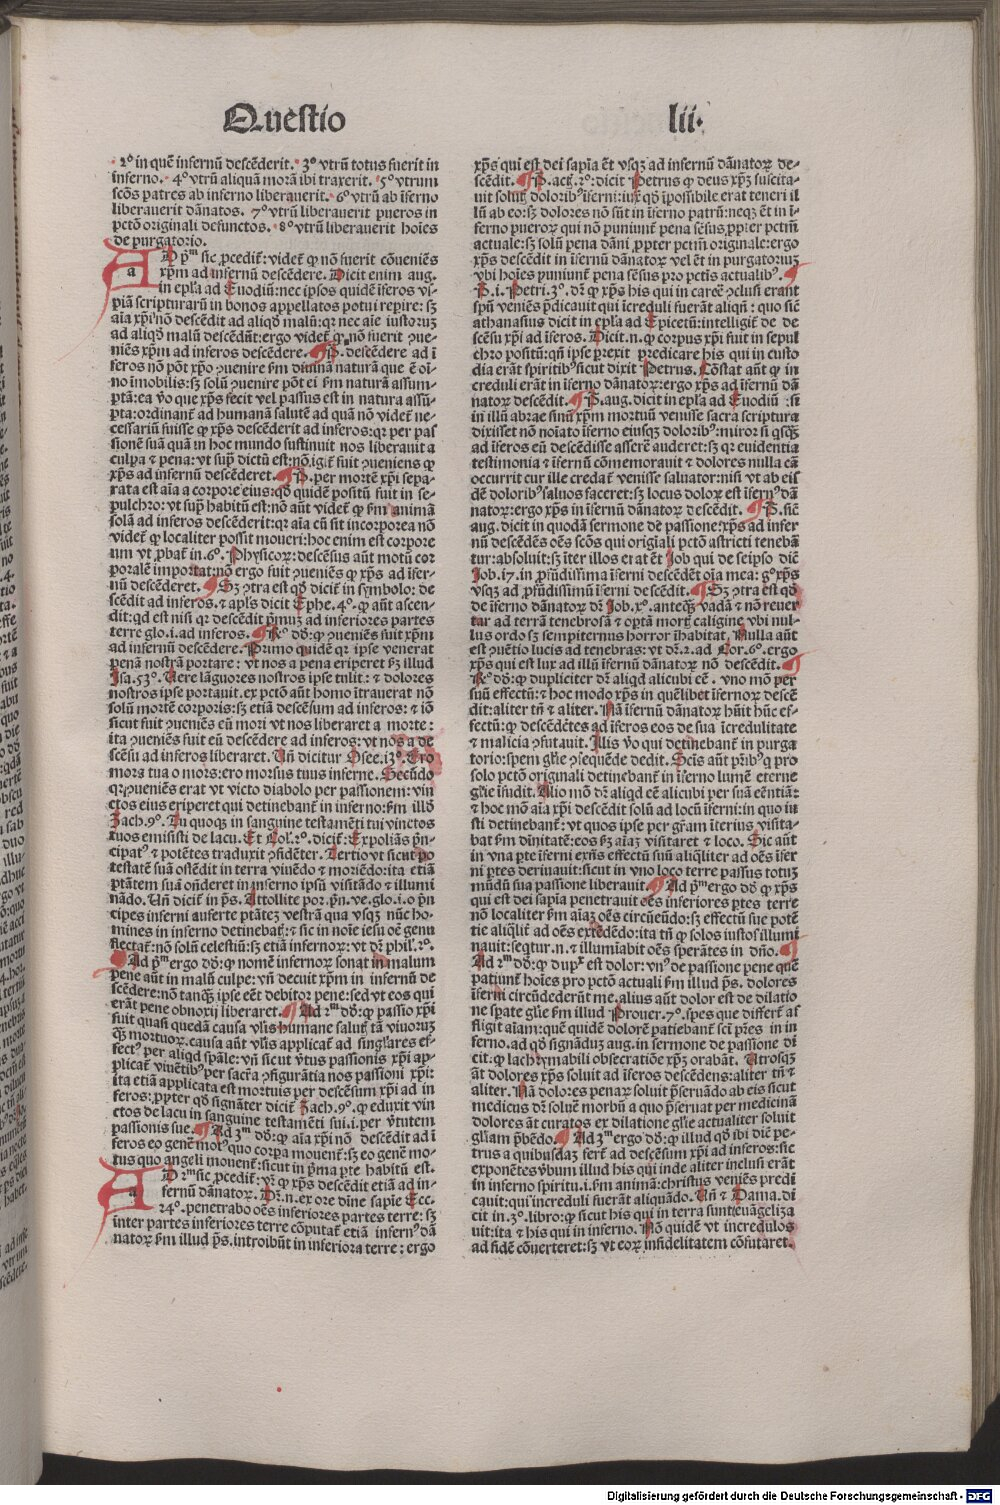 Questio lii.
2º in quē infernū descēderit. 3º vtrū totus fuerit in
inferno. 4º vtrū aliquā morā ibi traxerit. 5º vtrum
scōs patres ab inferno liberauerit. 6º vtrū ab īferno
liberauerit dānatos. 7º vtrū liberauerit pueros in
pctō originali defunctos. 8º vtrū liberauerit hoīes
de purgatorio.
AD pᵐ sic ꝓcedit᷑: videt᷑ ꝙ nō fuerit cōueniēs
xp̄m ad infernū descēdere. Dicit enim aug.
in ep̄la ad Euodiū: nec ipsos quidē īferos vs-
piā scripturarū in bonos appellatos potui repire: sꝫ
aīa xp̄i nō descēdit ad aliqd malū: qꝛ nec aīe iustoruꝫ
ad aliqd malū descēdūt: ergo videt᷑ ꝙ nō fuerit ꝯue-
niēs xp̄m ad inferos descēdere. ¶ P. descēdere ad ī
feros nō pōt xp̄o ꝯuenire ẜm diuinā naturā que ē oī-
no īmobilis: sꝫ solū ꝯuenire pōt ei ẜm naturā assum-
ptā: ea ṽo que xp̄s fecit vel passus est in natura assū-
pta: ordinant᷑ ad humanā salutē ad quā nō videt᷑ ne-
cessariū fuisse ꝙ xp̄s descēderit ad inferos: qꝛ per pas
sionē suā quā in hoc mundo sustinuit nos liberauit a
culpa ⁊ pena: vt supᷓ dictū est: nō.igit᷑ fuit ꝯueniens ꝙ
xp̄s ad infernū descēderet. ¶ P. per mortē xp̄i sepa-
rata est aīa a corpore eius: qd̄ quidē positū fuit in se-
pulchro: vt supᷓ habitū est: nō aūt videt᷑ ꝙ ẜm animā
solā ad inferos descēderit: qꝛ aīa cū sit incorporea nō
videt᷑ ꝙ localiter possit moueri: hoc enim est corpore
um vt ꝓbat᷑ in.6º. Physicoꝝ: descēsus aūt motū cor
poralē importat: nō ergo fuit ꝯueniēs ꝙ xp̄s ad īfer-
nū descēderet. ¶ Sꝫ ꝯtra est qd̄ dicit᷑ in symbolo: de
scēdit ad inferos. ⁊ apl̄s dicit Ephe.4º. ꝙ aūt ascen-
dit: qd est nisi qꝛ descēdit pⁱmuꝫ ad inferiores partes
terre glo.i.ad inferos. ¶ Rº dd̄: ꝙ ꝯueniēs fuit xp̄m
ad infernū descēdere. Primo quidē qꝛ ipse venerat
penā nostrā portare: vt nos a pena eriperet ẜm illud
Isa.53º. Uere lāguores nostros ipse tulit: ⁊ dolores
nostros ipse portauit. ex pctō aūt homo ītrauerat nō
solū mortē corporis: sꝫ etiā descēsum ad inferos: ⁊ iō
sicut fuit ꝯueniēs eū mori vt nos liberaret a morte:
ita ꝯueniēs fuit eū descēdere ad inferos: vt nos a de
scēsu ad inferos liberaret. Un̄ dicitur Osee.13º. Ero
mors tua o mors: ero morsus tuus inferne. Secūdo
qꝛ ꝯueniēs erat vt victo diabolo per passionem: vin
ctos eius eriperet qui detinebant᷑ in inferno: ẜm illđ
Zach.9º. Tu quoqꝫ in sanguine testamēti tui vinctos
tuos emisisti de lacu. Et Col.2º. dicit᷑: Expoliās pⁱn-
cipatꝰ ⁊ potētes traduxit ꝯfidēter. Tertio vt sicut po
testatē suā ostēdit in terra viuēdo ⁊ moriēdo: ita etiā
ptātem suā on̄deret in inferno ipsū visitādo ⁊ illumi
nādo. Un̄ dicit᷑ in ps̄. Attollite por.pⁱn.ve.glo.i.o pⁱn
cipes inferni auferte ptātēꝫ vestrā qua vsqꝫ nūc ho-
mines in inferno detinebat᷑: ⁊ sic in noīe iesu oē genu
flectat᷑: nō solū celestiū: sꝫ etiā infernoꝝ: vt dꝛ phil̄.2º.
Ad pᵐ ergo dd̄: ꝙ nomē infernoꝝ sonat in malum
pene aūt in malū culpe: vn̄ decuit xp̄m in infernū de
scēdere: nō tanqꝫ ipse eēt debitor pene: sed vt eos qui
erāt pene obnoxij liberaret. ¶ Ad 2ᵐ dd̄: ꝙ passio xp̄i
fuit quasi quedā causa vl̄is humane salut᷑ tā viuoruꝫ
qᷓꝫ mortuoꝝ. causa aūt vl̄is applicat᷑ ad singl̄ares ef-
fectꝰ per aliqd spāle: vn̄ sicut ṽtus passionis xp̄i ap-
plicat᷑ viuētibꝰ per sacr̄a ꝯfigurātia nos passioni xp̄i:
ita etiā applicata est mortuis per descēsum xp̄i ad in
feros: ꝓpter qd̄ signāter dicit᷑ Zach.9º. ꝙ eduxit vin
ctos de lacu in sanguine testamēti sui.i.per ṽtutem
passionis sue. ¶ Ad 3ᵐ dd̄: ꝙ aīa xp̄i nō descēdit ad ī
feros eo genē motꝰ quo corpa mouent᷑: sꝫ eo genē mo-
tus quo angeli mouent᷑: sicut in pⁱma pte habitū est.
AD 2ᵐ sic ꝓcedit᷑: vr̄ ꝙ xp̄s descēdit etiā ad in-
fernū dānatoꝝ. Dꝛ.n.ex ore dīne sapīe Ecc.
24º. penetrabo oēs inferiores partes terre: sꝫ
inter partes inferiores terre cōputat᷑ etiā infernꝰ dā
natoꝝ ẜm illud ps̄. introibūt in inferiora terre: ergo
xp̄s qui est dei sapīa ēt vsqꝫ ad infernū dānatoꝝ de-
scēdit. ¶ P. act᷑.2º: dicit Petrus ꝙ deus xp̄ꝫ suscita-
uit solut᷑ doloribꝰ īferni: iuxᷓ qd̄ īpossibile erat teneri il
lū ab eo: sꝫ dolores nō sūt in īferno patrū: neqꝫ ēt in ī-
ferno pueroꝝ qui nō puniunt᷑ pena sēsus ꝓpter pctm̄
actuale: sꝫ solū pena dāni ꝓpter pctm̄ originale: ergo
xp̄s descēdit in īfernū dānatoꝝ vel ēt in purgatoriuꝫ
vbi hoīes puniunt᷑ pena sēsus pro pctis actualibꝰ. ¶
P.i.Petri.3º. dꝛ ꝙ xp̄s his qui in carcē ꝯclusi erant
spū veniēs p̄dicauit qui īcreduli fuerāt aliqn̄: quo sic᷑
athanasius dicit in ep̄la ad Epicetū: intelligit᷑ de de
scēsu xp̄i ad īferos. Dicit.n.ꝙ corpus xp̄i fuit in sepul
chro positū: qn̄ ipse ꝑrexit predicare his qui in custo
dia erāt spiritibꝰ sicut dixit Petrus. Cōstat aūt ꝙ in
creduli erāt in īferno dānatoꝝ: ergo xp̄s ad īfernū dā
natoꝝ descēdit. ¶ P. aug. dicit in ep̄la ad Euodiū: si
in illū abrae sinū xp̄m mortuū venisse sacra scriptura
dixisset nō noīato īferno eiusqꝫ doloribꝰ: miror si qsqᷓꝫ
ad īferos eū descēdisse asserē auderet: sꝫ qꝛ euidentia
testimonia ⁊ īfernū cōmemorauit ⁊ dolores nulla cā
occurrit cur ille credat᷑ venisse saluator: nisi vt ab eis
dē doloribꝰ saluos faceret: sꝫ locus doloꝝ est īfernꝰ dā
natoꝝ: ergo xp̄s in īfernū dānatoꝝ descēdit. ¶ P. sic᷑
aug. dicit in quodā sermone de passione: xp̄s ad infer
nū descēdēs oēs scōs qui origīali pctō astricti tenebā
tur: absoluit: sꝫ īter illos erat ēt Job qui de seipso dic̄
Job.17.in ꝓfūdissima īferni descēdēt oīa mea: gº xp̄s
vsqꝫ ad ꝓfūdissimū īferni descēdit. ¶ Sꝫ ꝯtra est qd̄
de īferno dānatoꝝ dꝛ Job.xº. anteqᷓꝫ vadā ⁊ nō reuer
tar ad terrā tenebrosā ⁊ optā mort᷑ caligine vbi nul-
lus ordo sꝫ sempiternus horror īhabitat. Nulla aūt
est ꝯuētio lucis ad tenebras: vt dꝛ.2.ad Cor.6º. ergo
xp̄s qui est lux ad illū īfernū dānatoꝝ nō descēdit. ¶
Rº dd̄: ꝙ dupliciter dꝛ aliqd alicubi eē. vno mō per
suū effectū: ⁊ hoc modo xp̄s in quēlibet īfernoꝝ descē
dit: aliter tn̄ ⁊ aliter. Nā īfernū dānatoꝝ hūit hūc ef-
fectū: ꝙ descēdētes ad īferos eos de sua īcredulitate
⁊ malicia ꝯfutauit. Illis ṽo qui detinebant᷑ in purga
torio: spem gl̄ie ꝯsequēde dedit. Scīs aūt pr̄ibꝰ qui pro
solo pctō originali detinebant᷑ in īferno lumē eterne
gl̄ie īfudit. Alio mō dꝛ aliqd eē alicubi per suā eēntiā:
⁊ hoc mō aīa xp̄i descēdit solū ad locū īferni: in quo iu
sti detinebant᷑: vt quos ipse per gr̄am īterius visita-
bat ẜm diuinitatē: eos ẜm aīaꝫ visitaret ⁊ loco. Sic aūt
in vna pte īferni exn̄s effectū suū aliqliter ad oēs īfer
ni ptes deriuauit: sicut in vno loco terre passus totuꝫ
mūdū sua passione liberauit. ¶ Ad pᵐ ergo dd̄ ꝙ xp̄s
qui est dei sapīa penetrauit oēs inferiores ptes terre
nō localiter ẜm aīaꝫ oēs circūeūdo: sꝫ effectū sue potē
tie aliqlit᷑ ad oēs extēdēdo: ita tn̄ ꝙ solos iustos illumi
nauit: seqtur.n.⁊ illumīabit oēs sperātes in dn̄o. ¶
Ad 2ᵐ dd̄: ꝙ dupˣ est dolor: vnꝰ de passione pene quē
patiunt᷑ hoīes pro pctō actuali ẜm illud ps̄. dolores
īferni circūdederūt me. alius aūt dolor est de dilatio
ne spate gl̄ie ẜm illud Prouer.7º. spes que differt᷑ af
fligit aīam: quē quidē dolorē patiebant᷑ sci p̄res in in
ferno. ad qd̄ signāduꝫ aug. in sermone de passione di
cit: ꝙ lachrymabili obsecratiōe xp̄ꝫ orabāt. Utrosqꝫ
aūt dolores xp̄s soluit ad īferos descēdens: aliter tn̄ ⁊
aliter. Nā dolores penaꝝ soluit p̄seruādo ab eis sicut
medicus dꝛ soluē morbū a quo p̄seruat per medicinā
dolores aūt curatos ex dilatione gl̄ie actualiter soluit
gl̄iam p̄bēdo. ¶ Ad 3ᵐ ergo dd̄: ꝙ illud qd̄ ibi dic᷑ pe-
trus a quibusdaꝫ fert᷑ ad descēsum xp̄i ad inferos: sic
exponētes ṽbum illud his qui inde aliter inclusi erāt
in inferno spiritu.i.ẜm animā: christus veniēs predi
cauit: qui īcreduli fuerāt aliquādo. Un̄ ⁊ Dama. di
cit in.3º.libro: ꝙ sicut his qui in terra sunt: euāgeliza
uit: ita ⁊ his qui in inferno. Nō quidē vt incredulos
ad fidē cōuerteret: sꝫ vt eoꝝ infidelitatem cōfutaret.
Digitalisierung gefördert durch die Deutsche Forschungsgemeinschaft - DFG